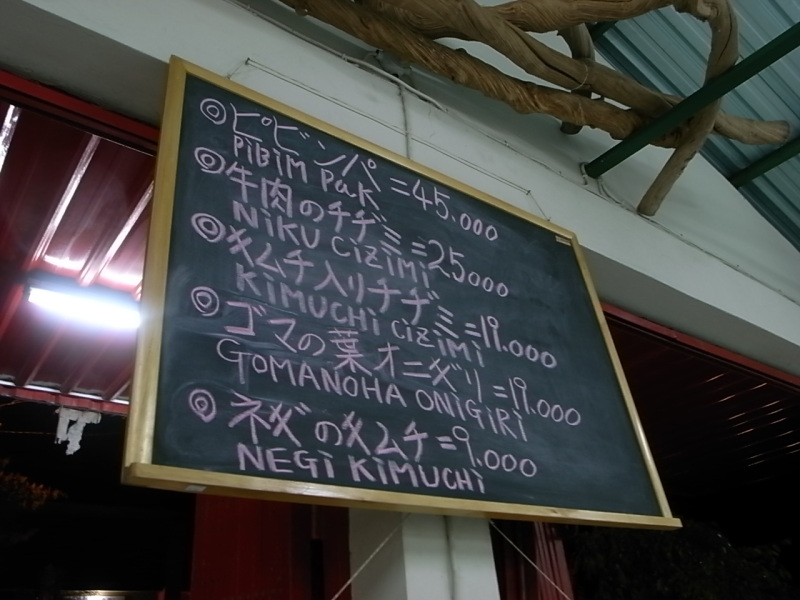 ◎ピビンパ=45.000
PIBIM PAK
◎牛肉のチヂミ=25000
NIKU CIZIMI
◎キムチ入リチヂミ=19.000
KIMUCHI CIZIMI
◎ゴマの葉オニギリ=19.000
GOMANOHA ONIGIRI
◎ネギのキムチ=9.000
NEGI KIMUCHI